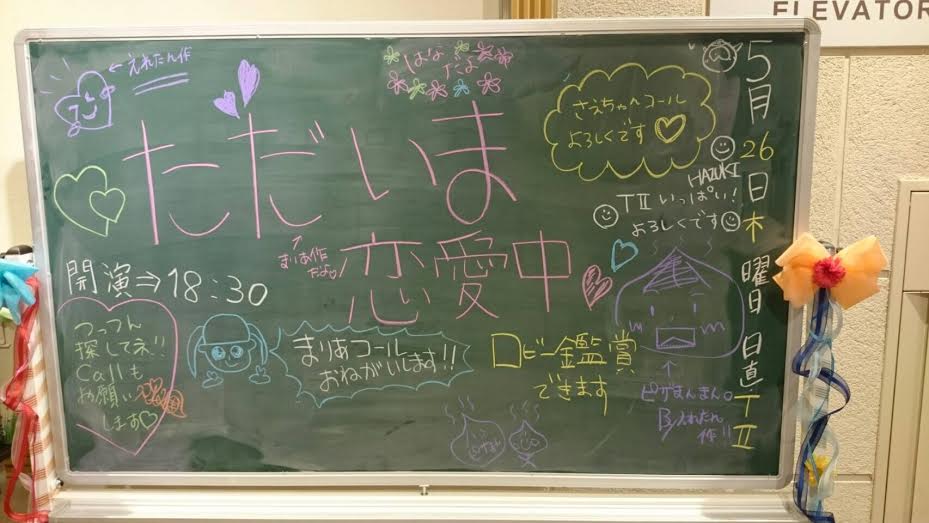 ELEVATOR
5月26日木曜日 日直 TⅡ
←えれたん作
はな
だよ
さえちゃんコール
よろしくです♡
ただいま
恋愛中
まりあ作
だよ
HAZUKI
TⅡ いっぱい!
よろしくです
開演⇒18:30
つっつん
探してネ!!
Callも
お願い
します♡
まりあコール
おねがいします!!
ロビー鑑賞
できます
ピザまんまん。
Byえれたん
作!!